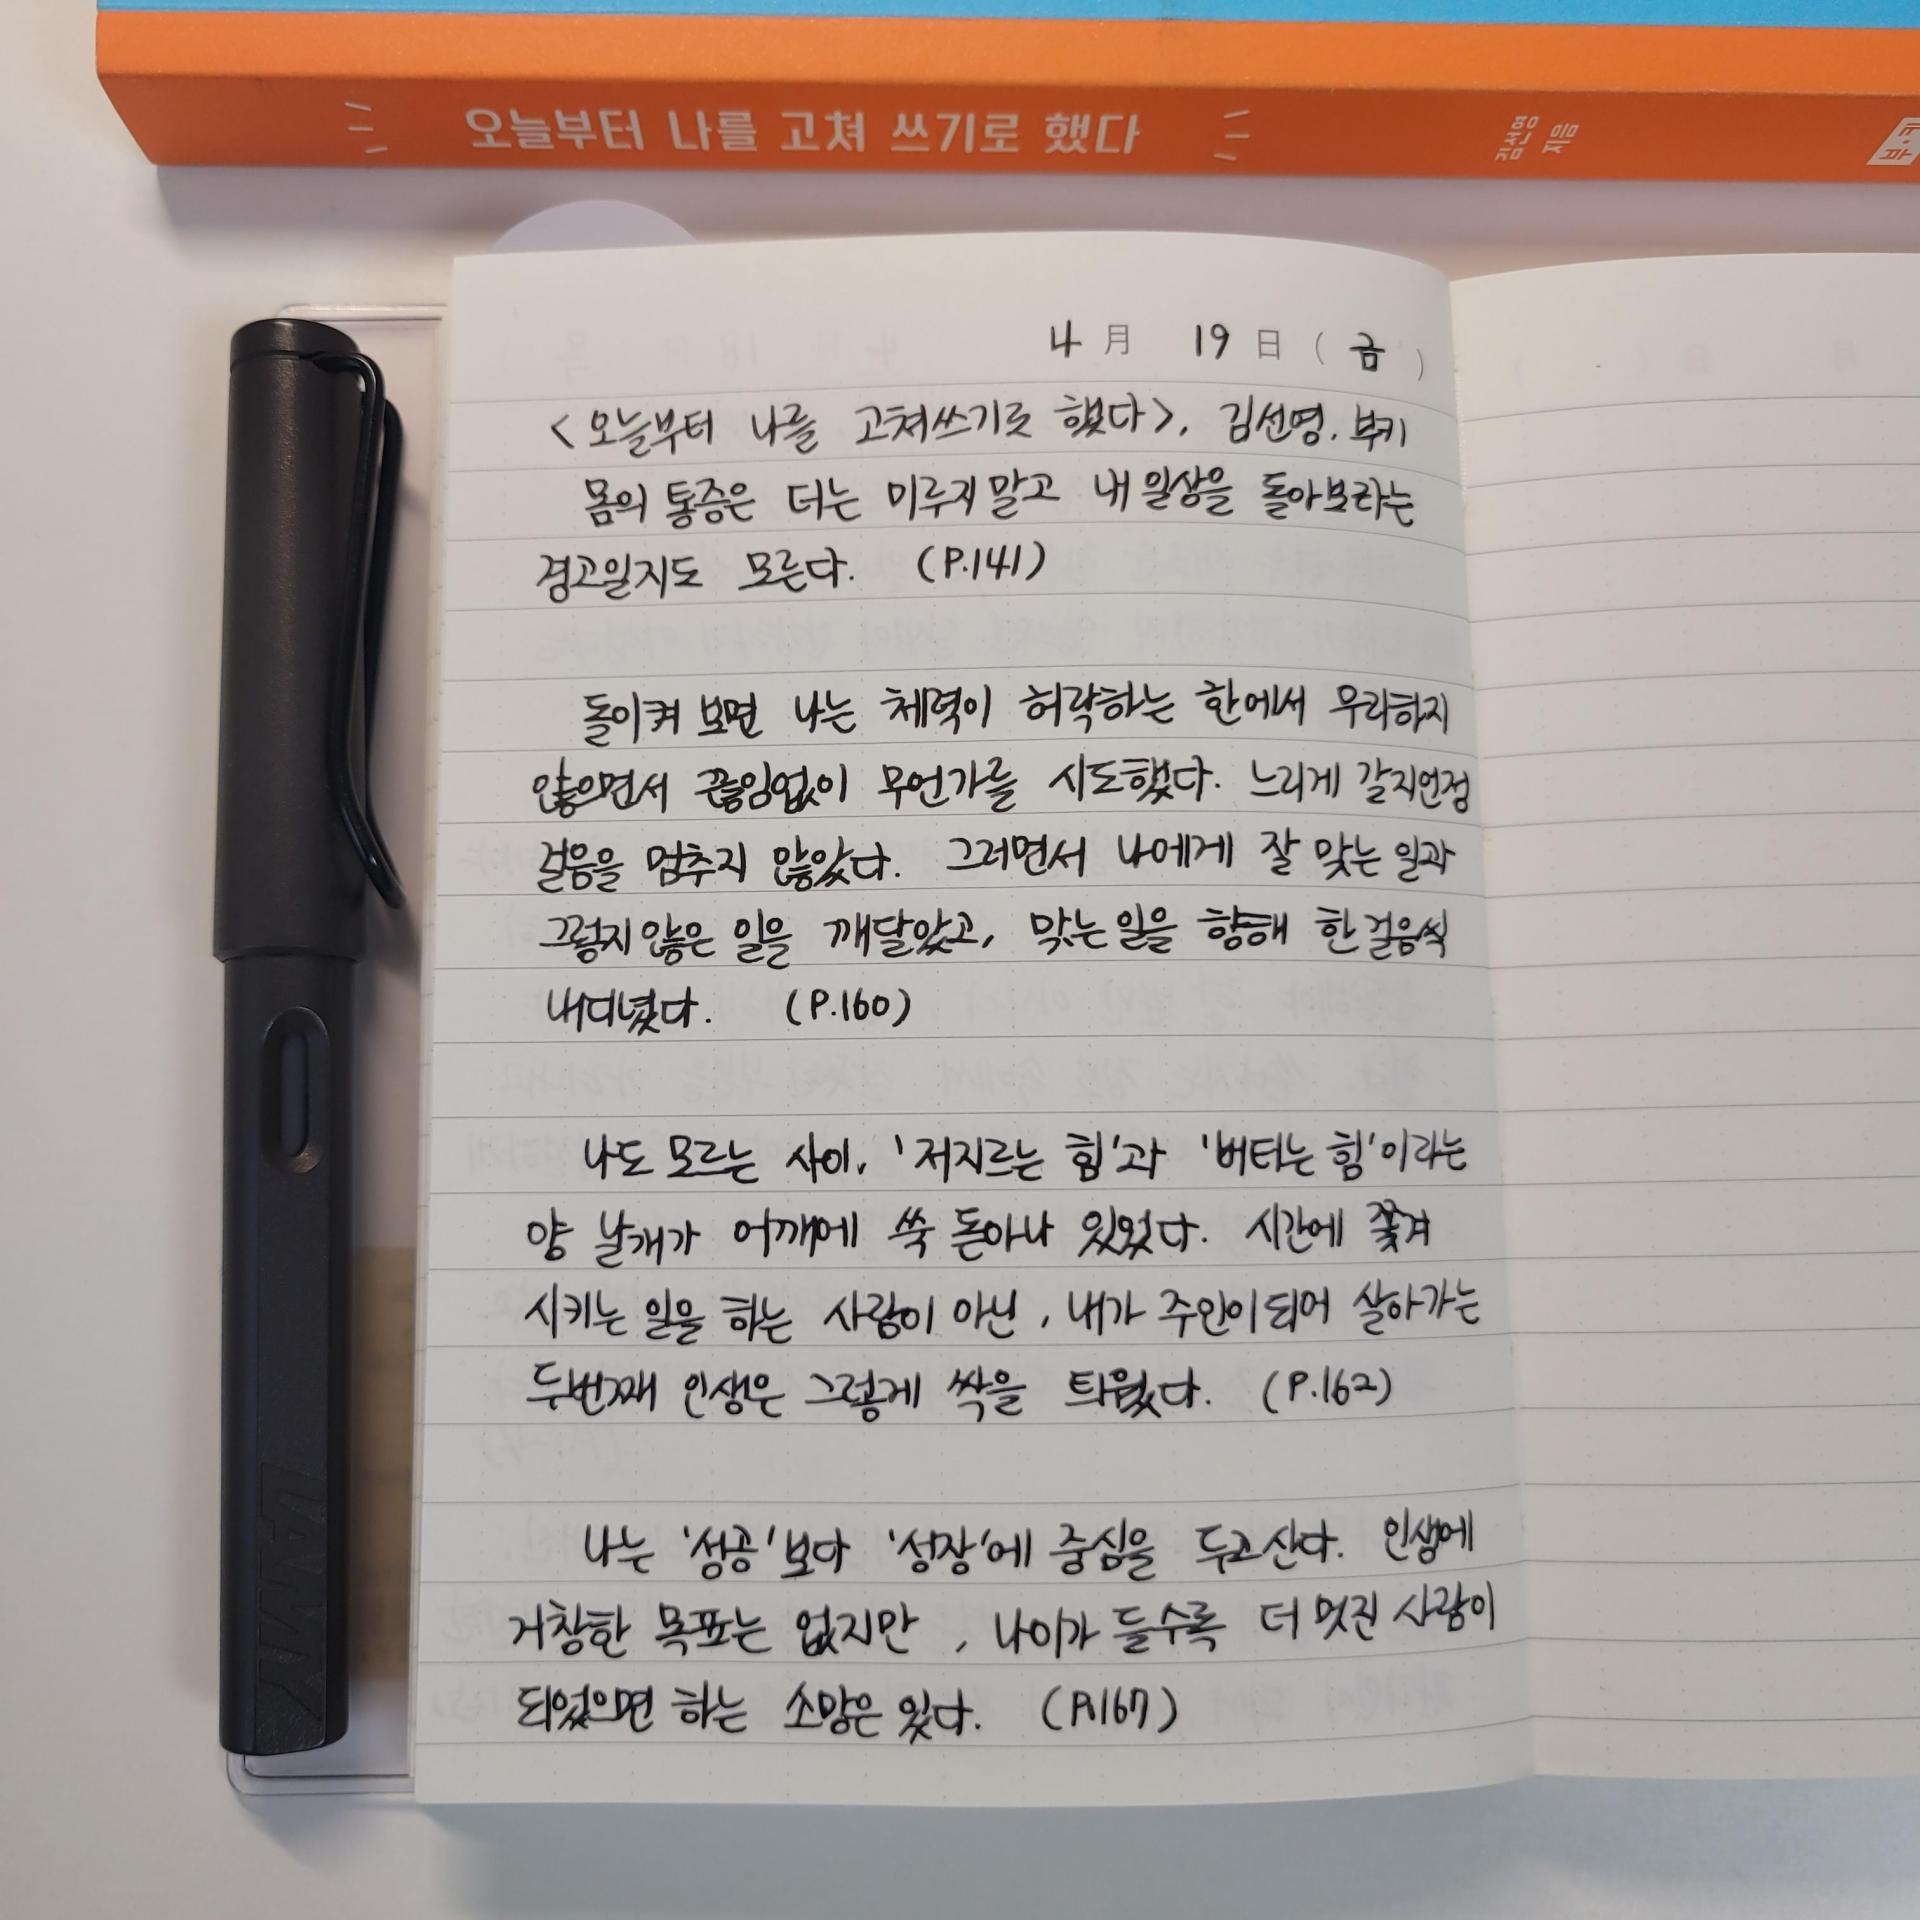 오늘부터 나를 고쳐 쓰기로 했다
김선영
지음
부키
4月 19日(금)
<오늘부터 나를 고쳐쓰기로 했다>, 김선영. 부키
몸의 통증은 더는 미루지말고 내 일상을 돌아보라는
경고일지도 모른다. (P.141)
돌이켜 보면 나는 체력이 허락하는 한에서 무리하지
않으면서 끊임없이 무언가를 시도했다. 느리게 갈지언정
걸음을 멈추지 않았다. 그러면서 나에게 잘 맞는 일과
그렇지 않은 일을 깨달았고, 맞는 일을 향해 한 걸음씩
내디녔다. (P.160)
나도 모르는 사이, '저지르는 힘'과 '버티는 힘'이라는
양 날개가 어깨에 쑥 돋아나 있었다. 시간에 쫓겨
시키는 일을 하는 사람이 아닌, 내가 주인이 되어 살아가는
두번째 인생은 그렇게 싹을 틔웠다. (P.162)
나는 '성공'보다 '성장'에 중심을 두고 산다. 인생에
거창한 목표는 없지만, 나이가 들수록 더 멋진 사람이
되었으면 하는 소망은 있다. (P.167)
LAMY